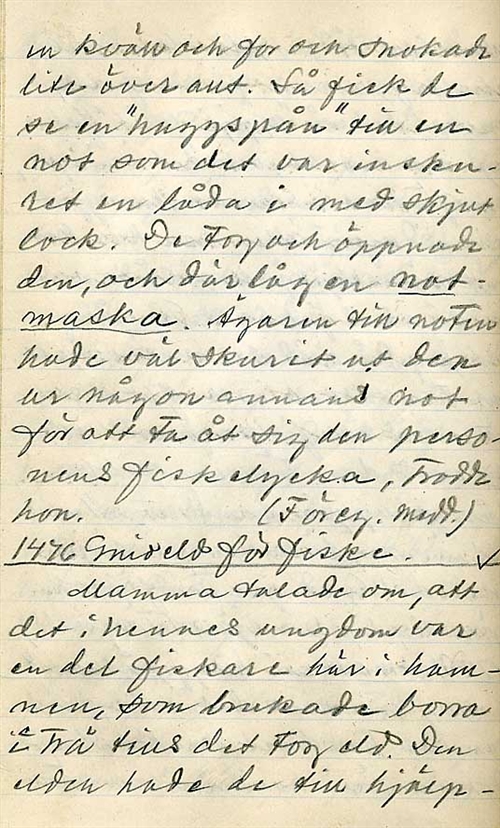 en kväll och for och snokade
lite överallt. Så fick de
se en "huggspån" till en
not som det var insku-
ret en låda i med skjut
lock. De tog och öppnade
den, och där låg en not-
maska. Ägaren till noten
hade väl skurit ut den
ur någon annans not
för att ta åt sig den perso-
nens fiskelycka, trodde
hon. (Föreg. medd.)
1476 Gnideld för fiske. ✓
Mamma talade om, att
det i hennes ungdom var
en del fiskare här i ham-
nen, som brukade borra
i trä tills det tog eld. Den
elden hade de till hjälp-